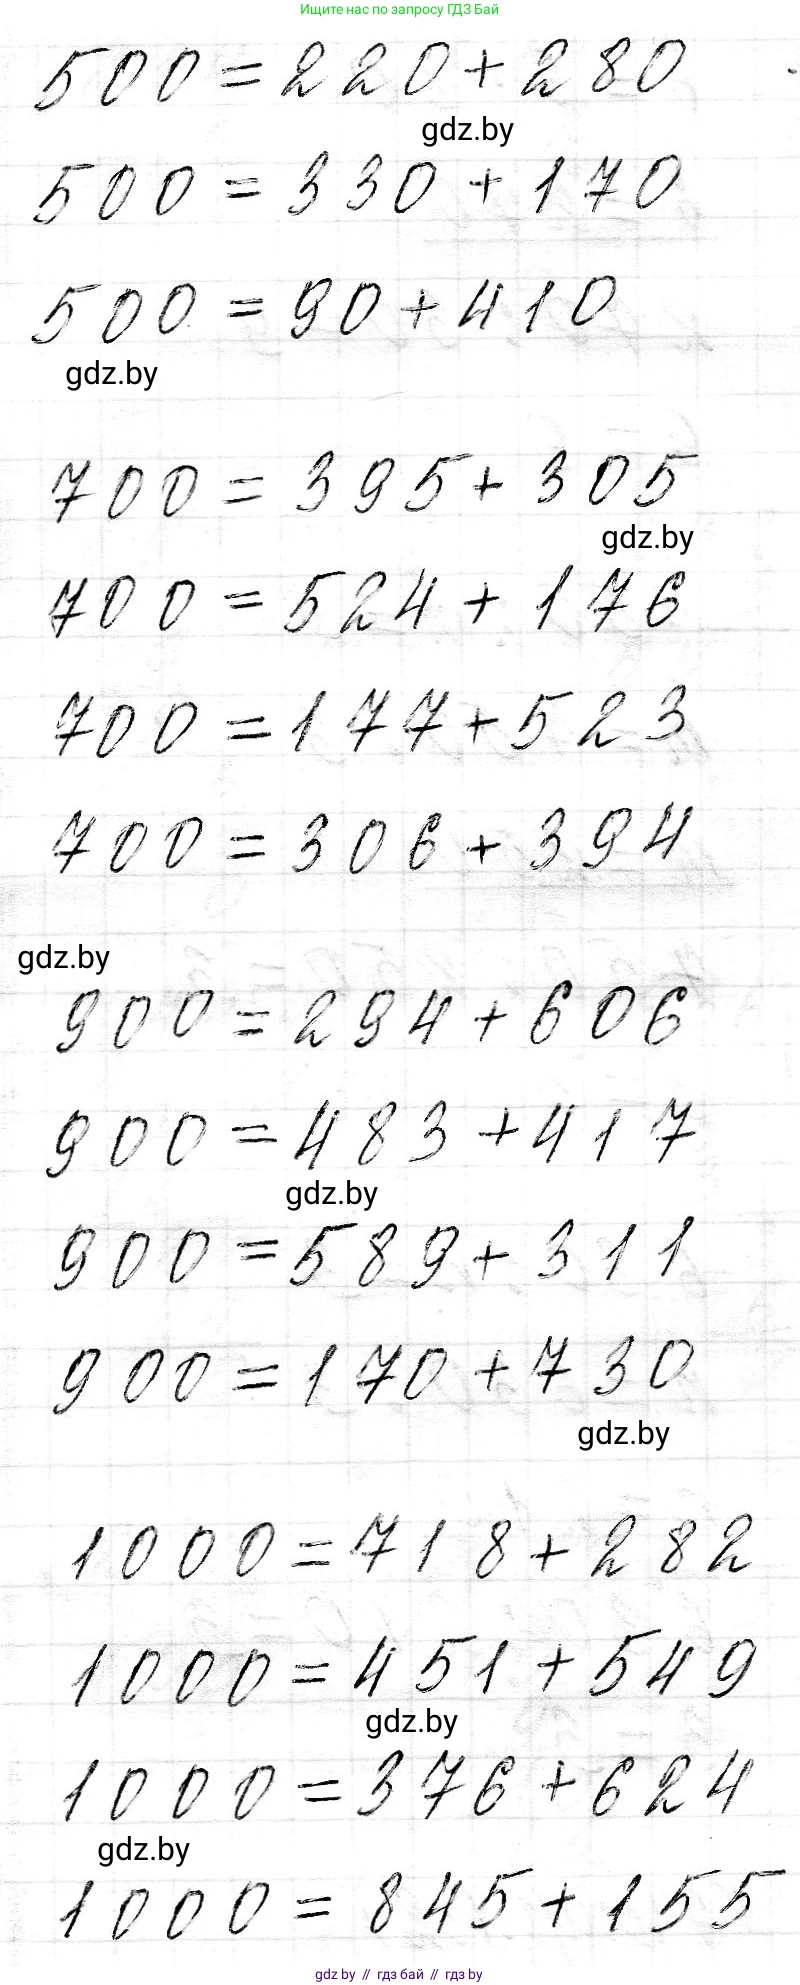 Ищите нас по запросу ГДЗ Бай
500 = 220 + 280
gdz.by
500 = 330 + 170
500 = 90 + 410
gdz.by
700 = 395 + 305
gdz.by
700 = 524 + 176
700 = 177 + 523
700 = 306 + 394
gdz.by
900 = 294 + 606
900 = 483 + 417
gdz.by
900 = 589 + 311
900 = 170 + 730
gdz.by
1000 = 718 + 282
1000 = 451 + 549
gdz.by
1000 = 376 + 624
gdz.by
1000 = 845 + 155
gdz.by // гдз бай // gdz by